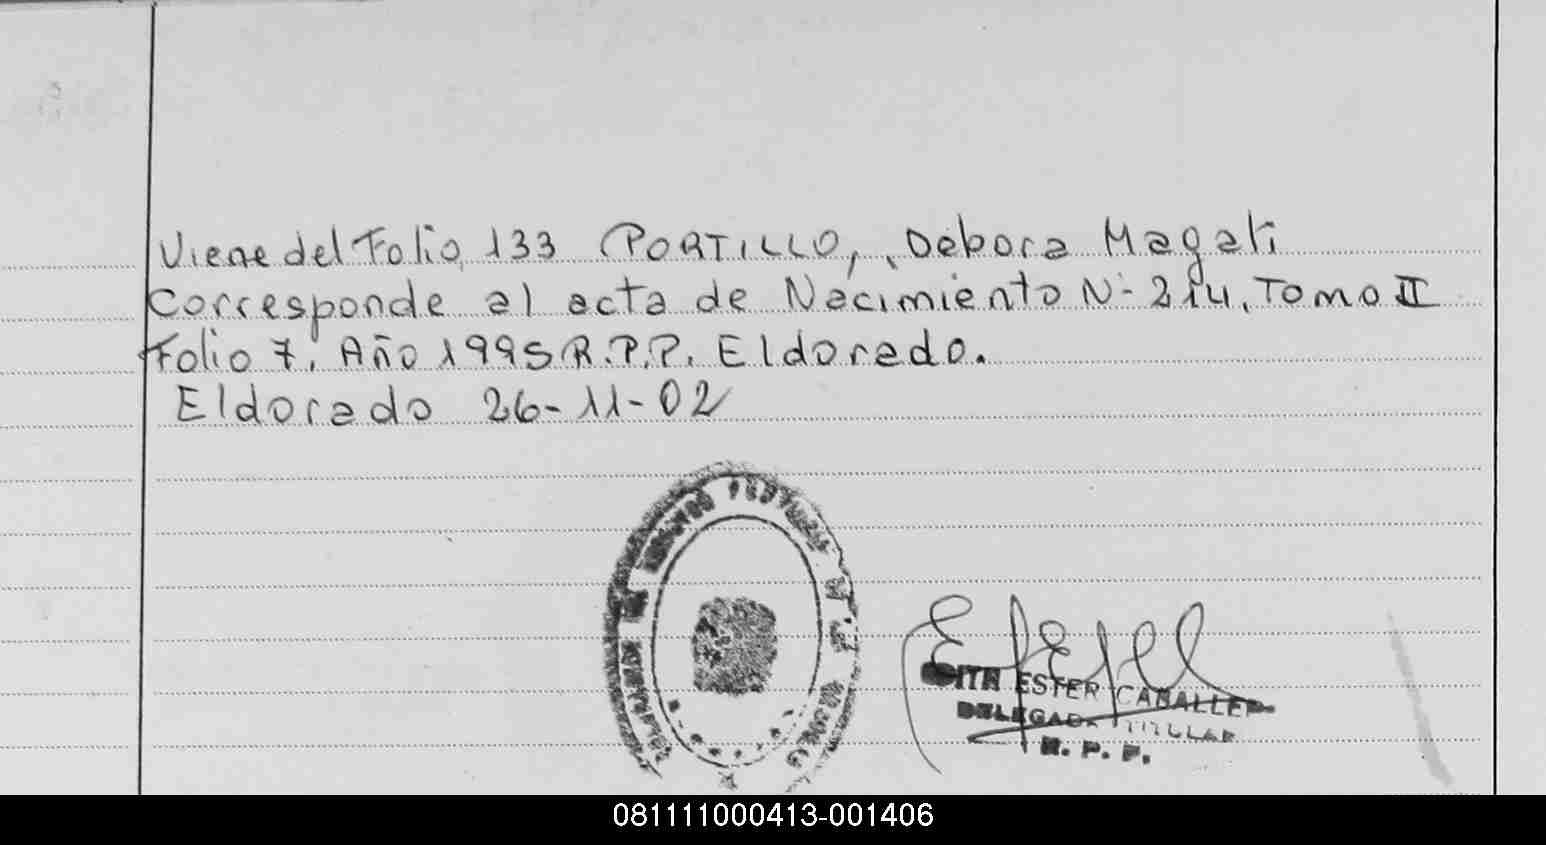 Viene del Folio 133 PORTILLO, Débora Magali
corresponde al acta de Nacimiento N- 214, Tomo II
Folio 7, Año 1995 R.P.P. Eldorado.
Eldorado 26-11-02
ESTER CABALLE
DELEGADA TITULAR
R. P. P.
081111000413-001406